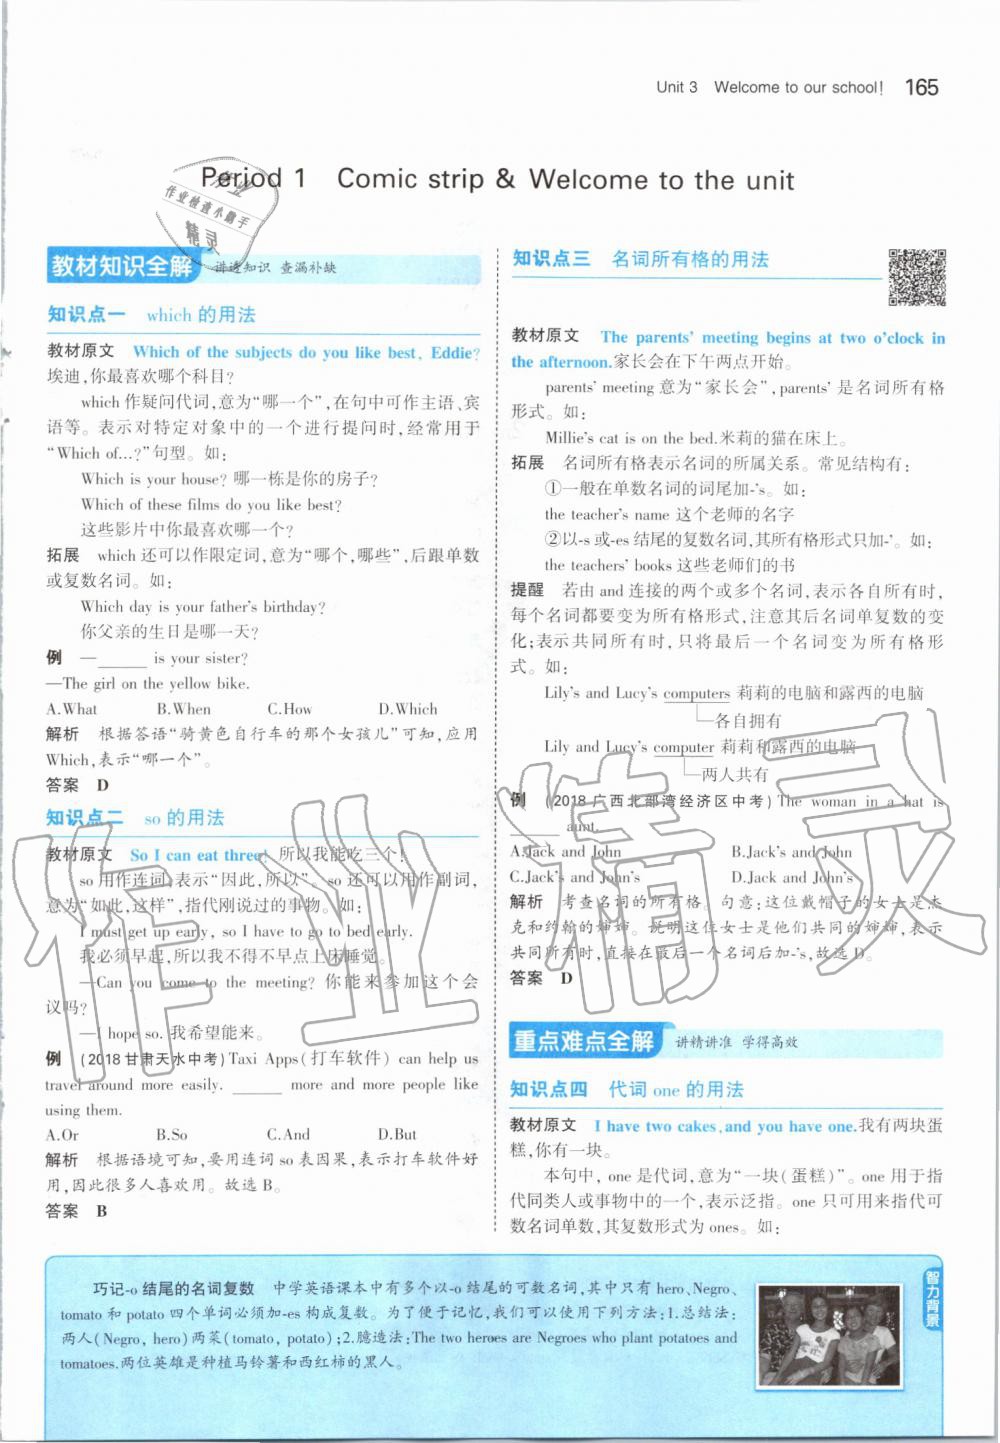 Unit 3 Welcome to our school! 165
Period 1 Comic strip & Welcome to the unit
教材知识全解 讲透知识 查漏补缺
知识点一 which 的用法
教材原文 Which of the subjects do you like best, Eddie?
埃迪,你最喜欢哪个科目?
which 作疑问代词,意为“哪一个”,在句中可作主语、宾
语等。表示对特定对象中的一个进行提问时,经常用于
“Which of...?”句型。如:
Which is your house? 哪一栋是你的房子?
Which of these films do you like best?
这些影片中你最喜欢哪一个?
拓展 which 还可以作限定词,意为“哪个,哪些”,后跟单数
或复数名词。如:
Which day is your father's birthday?
你父亲的生日是哪一天?
例 —______ is your sister?
—The girl on the yellow bike.
A.What B.When C.How D.Which
解析 根据答语“骑黄色自行车的那个女孩儿”可知,应用
Which,表示“哪一个”。
答案 D
知识点二 so 的用法
教材原文 So I can eat three! 所以我能吃三个!
so 用作连词,表示“因此,所以”。so 还可以用作副词,
意为“如此,这样”,指代刚说过的事物。如:
I must get up early, so I have to go to bed early.
我必须早起,所以我不得不早点上床睡觉。
—Can you come to the meeting? 你能来参加这个会
议吗?
—I hope so. 我希望能来。
例 (2018 甘肃天水中考) Taxi Apps(打车软件) can help us
travel around more easily. ______ more and more people like
using them.
A.Or B.So C.And D.But
解析 根据语境可知,要用连词 so 表因果,表示打车软件好
用,因此很多人喜欢用。故选 B。
答案 B
知识点三 名词所有格的用法
教材原文 The parents' meeting begins at two o'clock in
the afternoon.家长会在下午两点开始。
parents' meeting 意为“家长会”,parents' 是名词所有格
形式。如:
Millie's cat is on the bed.米莉的猫在床上。
拓展 名词所有格表示名词的所属关系。常见结构有:
①一般在单数名词的词尾加-'s。如:
the teacher's name 这个老师的名字
②以-s 或-es 结尾的复数名词,其所有格形式只加-'。如:
the teachers' books 这些老师们的书
提醒 若由 and 连接的两个或多个名词,表示各自所有时,
每个名词都要变为所有格形式,注意其后名词单复数的变
化;表示共同所有时,只将最后一个名词变为所有格形
式。如:
Lily's and Lucy's computers 莉莉的电脑和露西的电脑
各自拥有
Lily and Lucy's computer 莉莉和露西的电脑
两人共有
例 (2018 广西北部湾经济区中考) The woman in a hat is
______ aunt.
A.Jack and John B.Jack's and John
C.Jack's and John's D.Jack and John's
解析 考查名词的所有格。句意:这位戴帽子的女士是杰
克和约翰的婶婶。说明这位女士是他们共同的婶婶,表示
共同所有时,直接在最后一个名词后加-'s,故选 D。
答案 D
重点难点全解 讲精讲准 学得高效
知识点四 代词 one 的用法
教材原文 I have two cakes, and you have one.我有两块蛋
糕,你有一块。
本句中,one 是代词,意为“一块(蛋糕)”。one 用于指
代同类人或事物中的一个,表示泛指。one 只可用来指代可
数名词单数,其复数形式为 ones。如:
巧记-o 结尾的名词复数 中学英语课本中有多个以-o 结尾的可数名词,其中只有 hero、Negro、
tomato 和 potato 四个单词必须加-es 构成复数。为了便于记忆,我们可以使用下列方法:1.总结法:
两人(Negro, hero)两菜(tomato, potato);2.臆造法:The two heroes are Negroes who plant potatoes and
tomatoes.两位英雄是种植马铃薯和西红柿的黑人。
智力背景
作业精灵
作业检查小助手
精灵